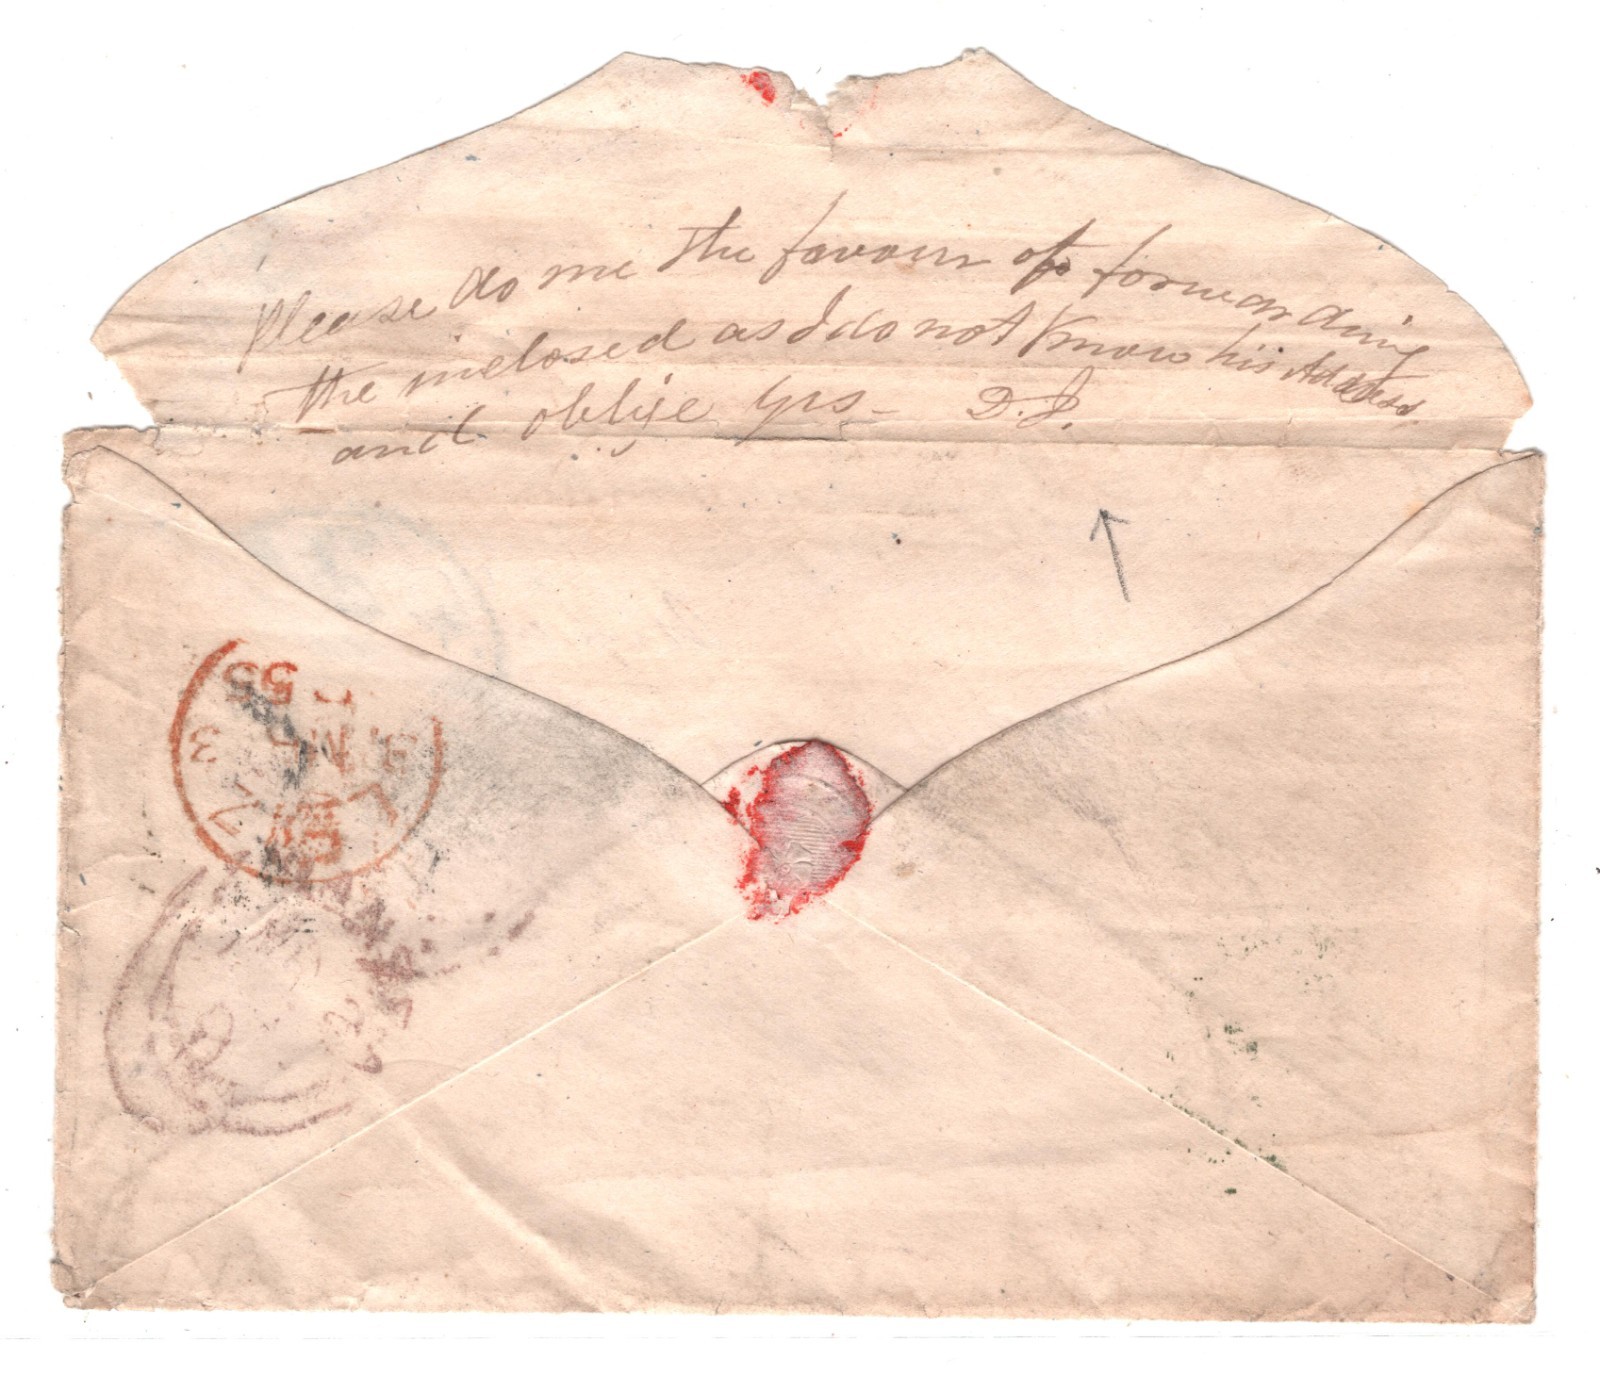 Please do me the favour of forwarding
the inclosed as I do not know his Address
and oblige Yrs - D.J.
3
55